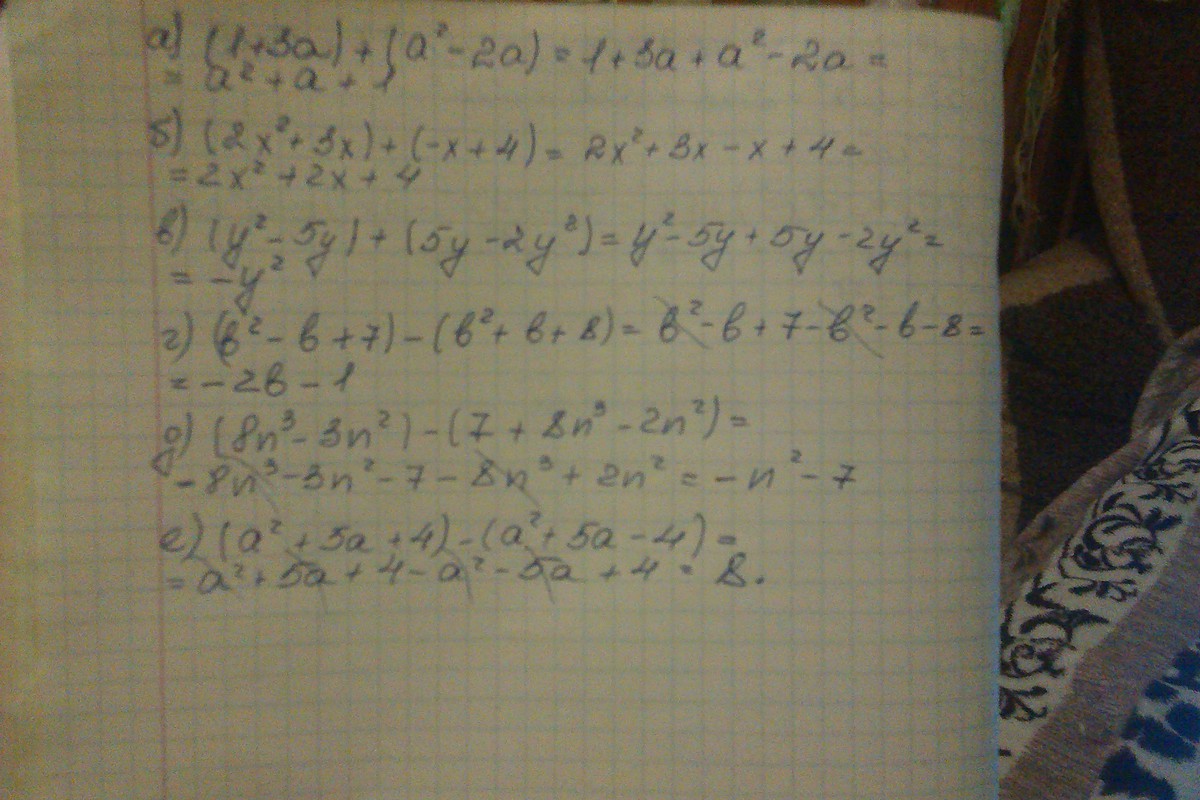 а) (1+3a)+(a²-2a)=1+3a+a²-2a=
=a²+a+1
б) (2x²+3x)+(-x+4)=2x²+3x-x+4=
=2x²+2x+4
в) (y²-5y)+(5y-2y²)=y²-5y+5y-2y²=
=-y²
г) (b²-b+7)-(b²+b+8)=b²-b+7-b²-b-8=
=-2b-1
д) (8n³-3n²)-(7+8n³-2n²)=
-8n³-3n²-7-8n³+2n²=-n²-7
е) (a²+5a+4)-(a²+5a-4)=
=a²+5a+4-a²-5a+4=8.